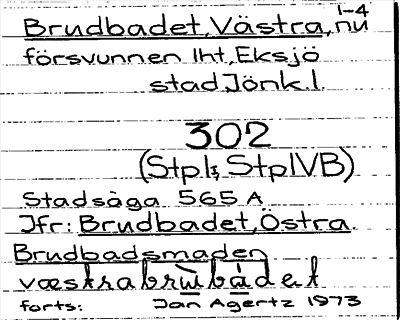 1-4
Brudbadet, Västra, nu
försvunnen lht, Eksjö
stad Jönk.l.
302
(Stpl; StplVB)
Stadsäga 565 A
Jfr: Brudbadet, Östra.
Brudbadsmaden
væstrabrùbàdet
forts: Jan Agertz 1973